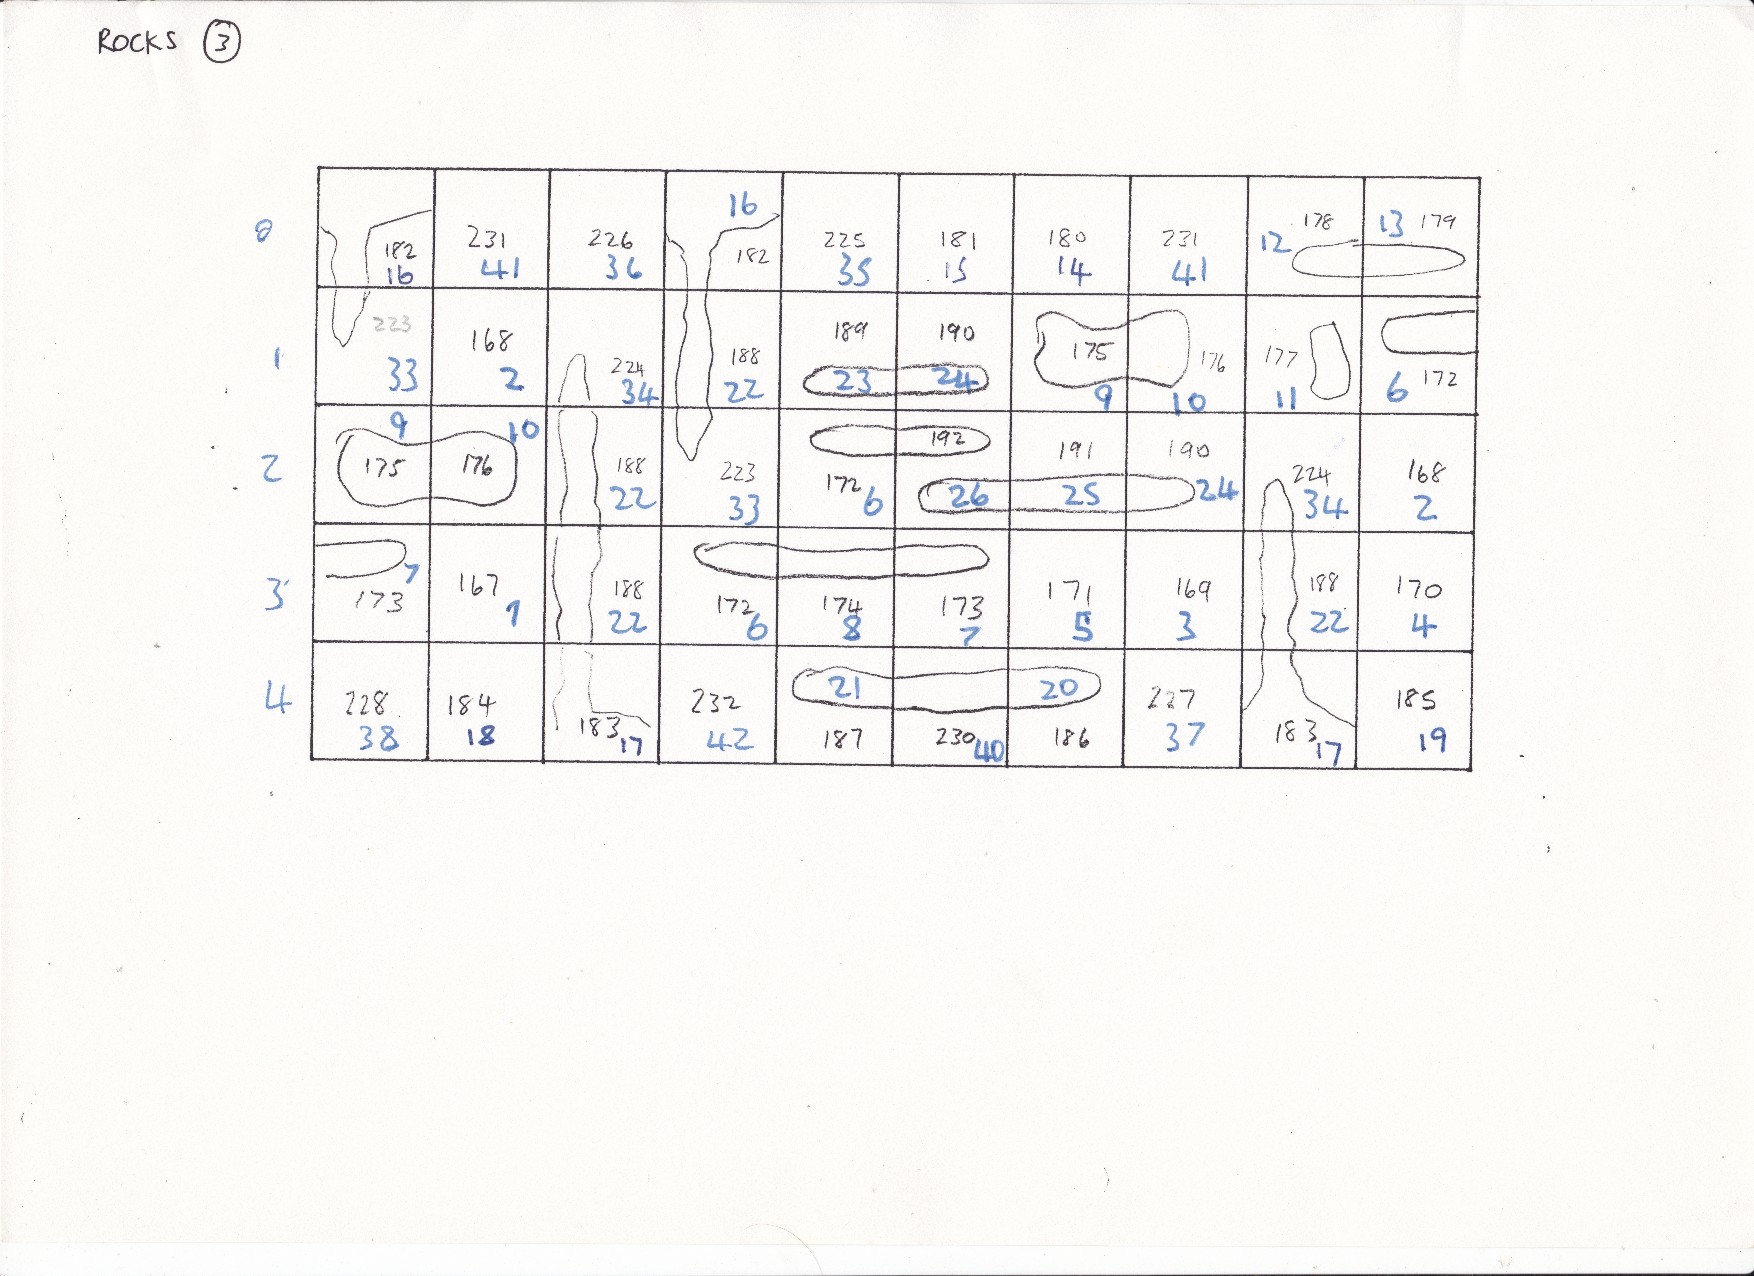 ROCKS 3
0
182 231 226 16 182 225 181 180 231 178 13 179
16 41 36 35 15 14 41 12
1
223 168 224 188 189 190 175 176 177 172
33 2 34 22 23 24 9 10 11 6
2
9 10
175 176 188 223 172 192 191 190 224 168
22 33 6 26 25 24 34 2
3
7
173 167 188 172 174 173 171 169 188 170
1 22 6 8 7 5 3 22 4
4
21 20
228 184 183 232 187 230 186 227 183 185
38 18 17 42 40 37 17 19